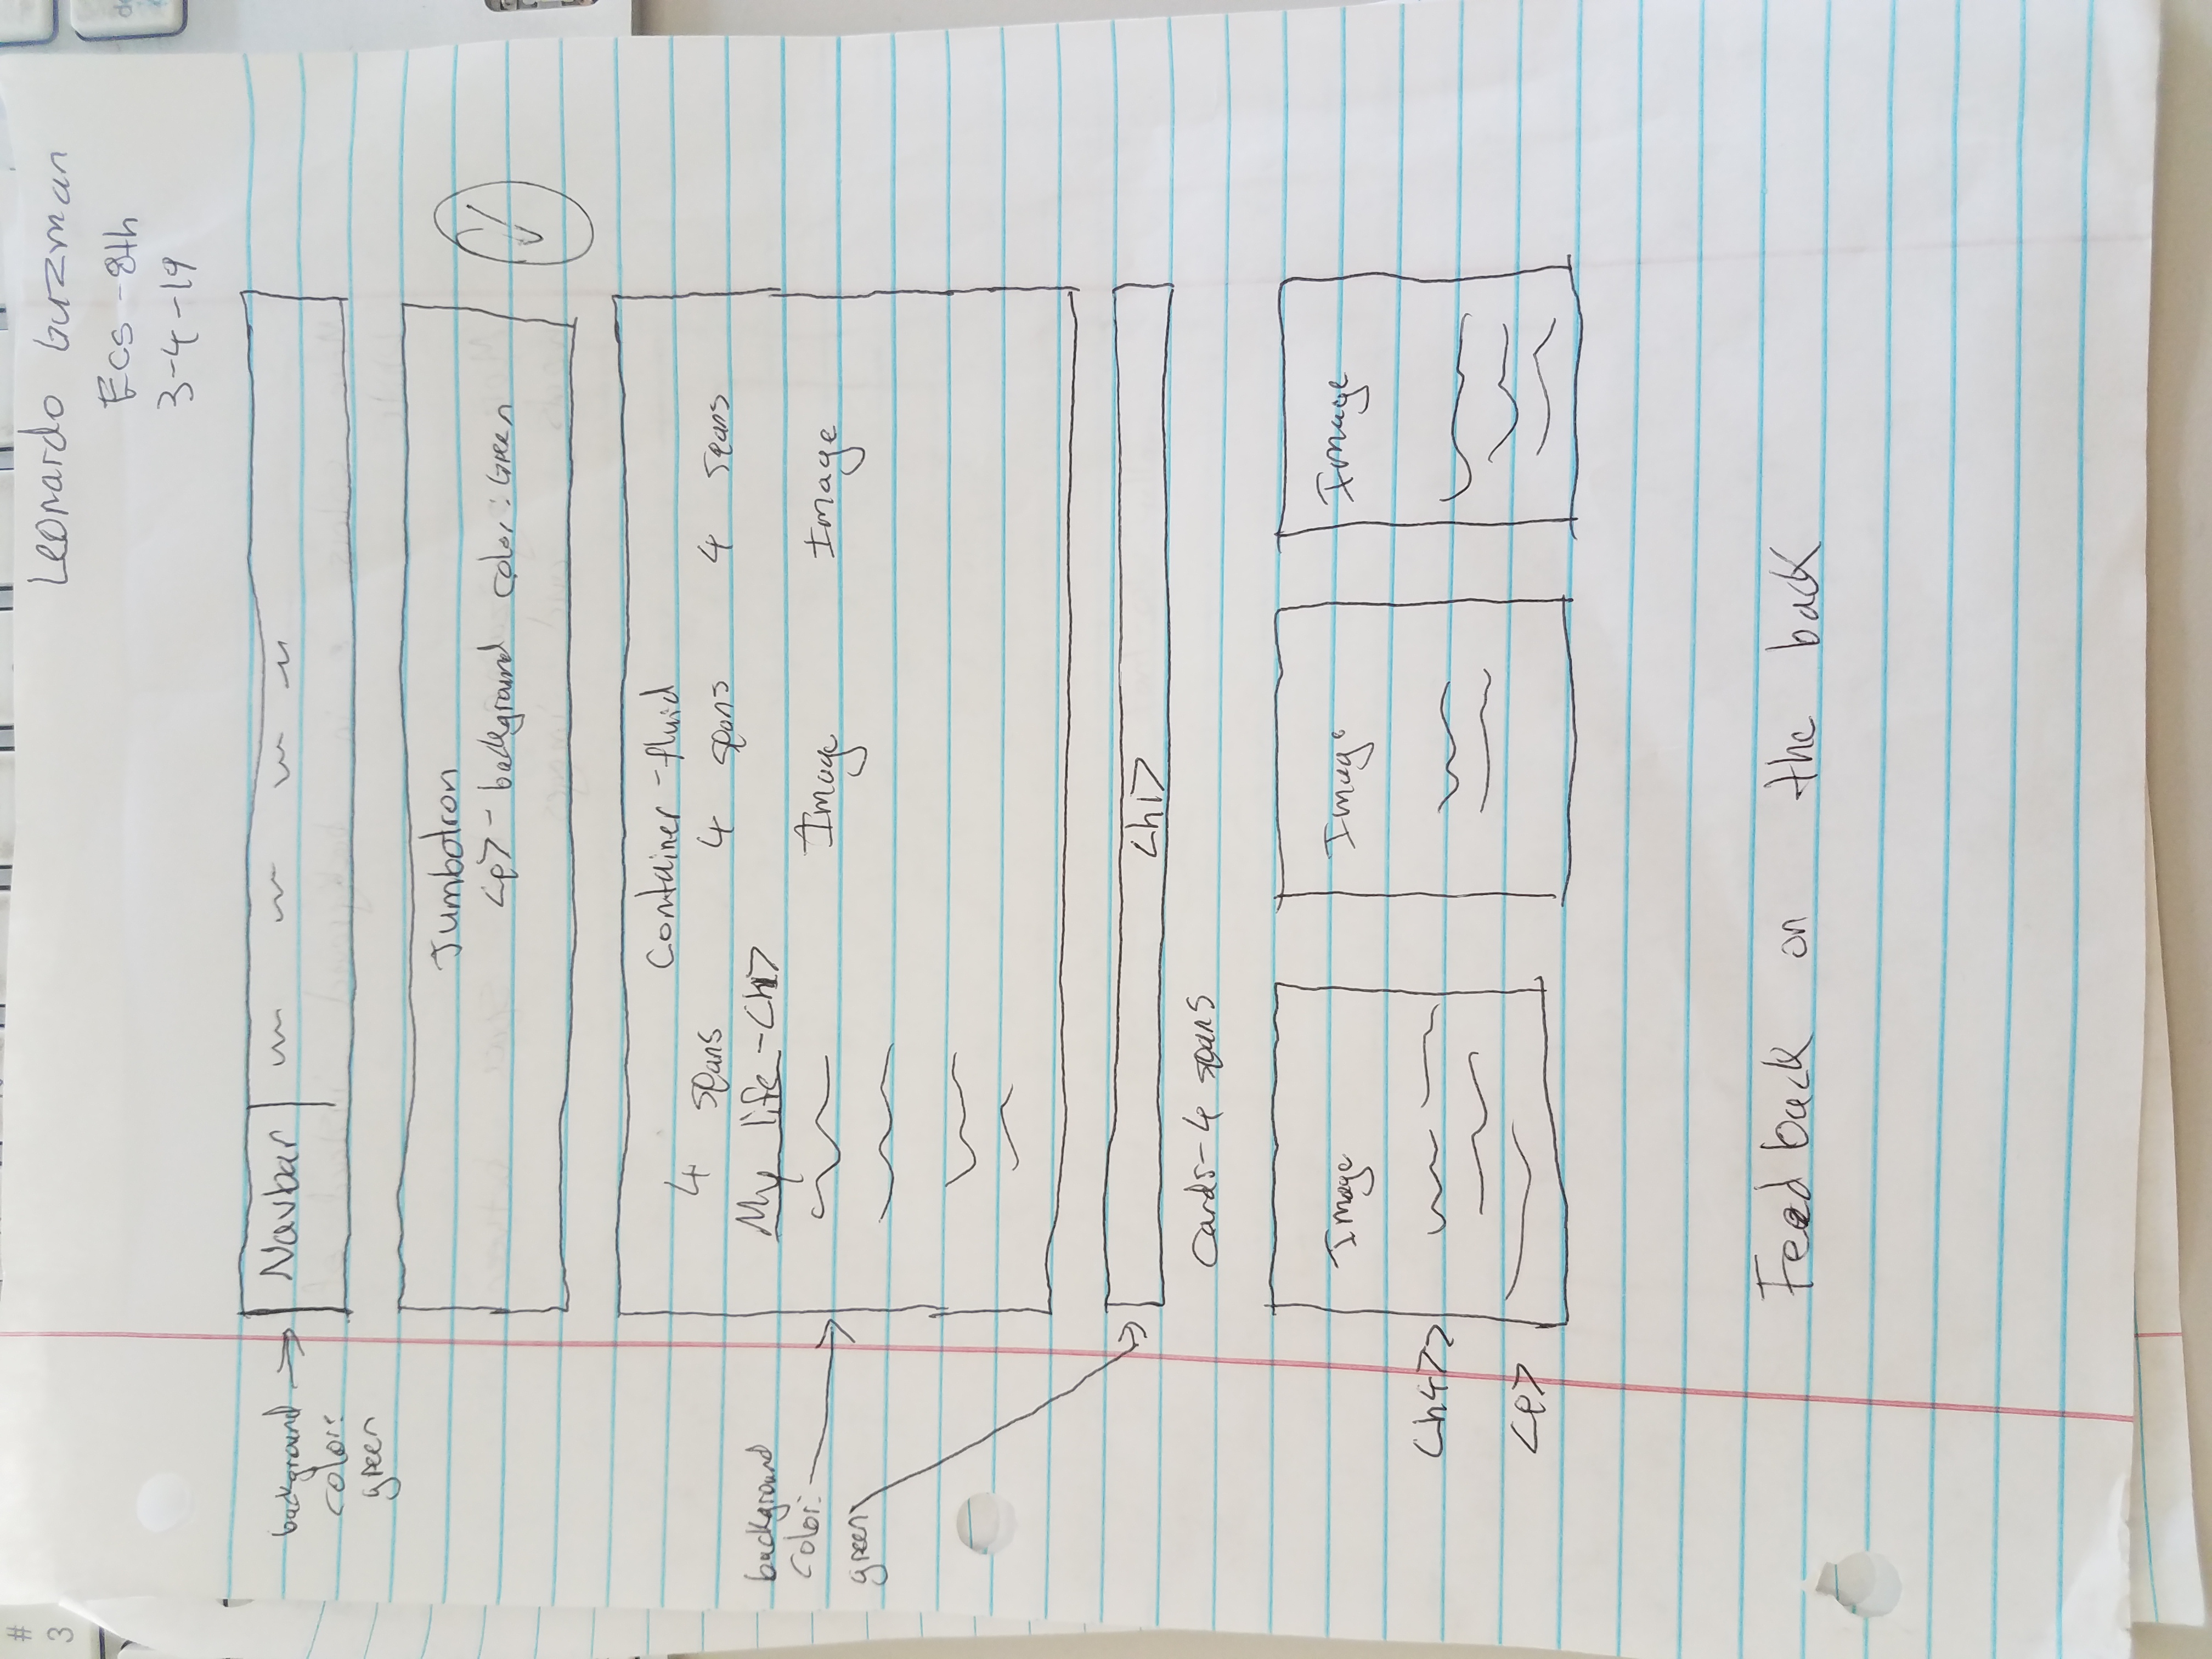 #
3
Leonardo Guzman
Ecs - 8th
3-4-19
Navbar
background
color:
green
Jumbotron
<p> - background color: Green
Container - fluid
4 spans 4 spans 4 spans
My life - <h1>
background
color:
green
Image Image
<h1>
Cards - 4 spans
Image Image Image
<h4>
<p>
Feedback on the back